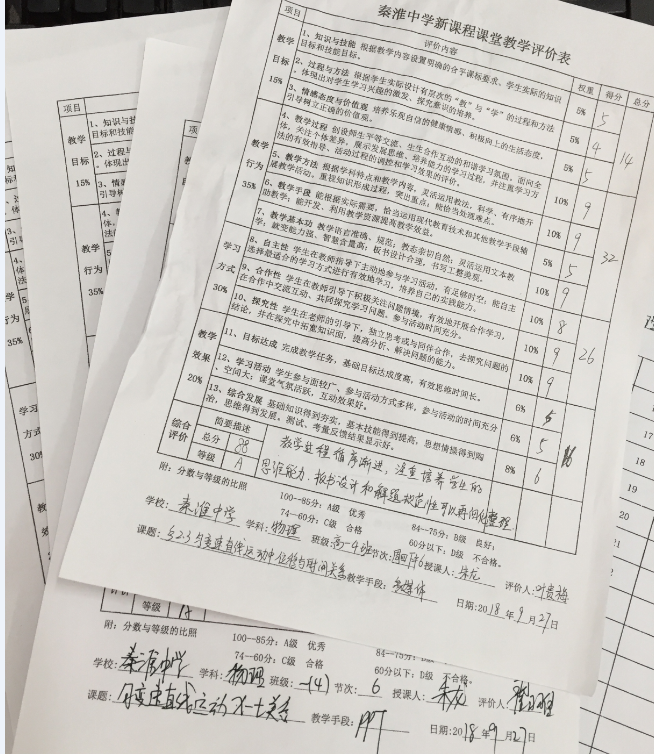 秦淮中学新课程课堂教学评价表
项目 评价内容 权重 得分 总分
教学目标 15%
1、知识与技能 根据教学内容设置明确的合乎课标要求、学生实际的知识目标和技能目标。 5% 5
2、过程与方法 根据学生实际设计有层次的“教”与“学”的过程和方法，体现出对学生学习兴趣的激发、探究意识的培养。 5% 4
3、情感态度与价值观 培养乐观自信的健康情感，积极向上的生活态度，引导树立正确的价值观。 5% 5
14
教学行为 35%
4、教学过程 创设师生平等交流、生生合作互动的和谐学习氛围，面向全体，关注个体差异，展示发展思维，培养能力的学习过程，并注重学习方法的有效指导、活动过程的调控和学习效果的评价。 10% 9
5、教学方法 根据学科特点和教学内容，灵活运用教法，科学、有序地开展教学活动。重视知识形成过程，突出重点，能恰当处理难点。 10% 9
6、教学手段 能根据实际需要，恰当运用现代教育技术和其他教学手段辅助教学；能开发、利用教学资源提高教学效益。 5% 5
7、教学基本功 教学语言准确、规范，教态亲切自然；灵活运用文本教学；就变能力强、智慧含量高；板书设计合理，书写工整美观。 10% 9
32
学习方式 30%
8、自主性 学生在教师指导下主动地参与学习活动，有足够时空；能自主选择最适合的学习方式进行有效地学习，培养自己的实践能力。 10% 8
9、合作性 学生在教师引导下积极关注问题情境，有效地开展合作学习，在合作中交流互动、共同探究学习问题，参与活动时间充分。 10% 9
10、探究性 学生在老师的引导下，独立思考或与同伴合作，去探究问题的结论，并在探究中拓宽知识面，提高分析、解决问题的能力。 10% 9
26
教学效果 20%
11、目标达成 完成教学任务，基础目标达成度高，有效思维时间长。 6% 5
12、学习活动 学生参与面较广、参与活动方式多样，参与活动的时间充分、空间大；课堂气氛活跃，互动效果好。 6% 5
13、综合发展 基础知识得到夯实，基本技能得到提高，思想情操得到陶冶，思维得到发展。测试、考量反馈结果显示好。 8% 6
16
综合评价 简要描述
总分 88
等级 A
教学进程循序渐进，注重培养学生的
思维能力，板书设计和解题规范性可以再
附：分数与等级的比照 100—85分：A级 优秀 84—75分：B级 良好；
74—60分：C级 合格 60分以下：D级 不合格。
学校：秦淮中学 学科：物理 班级：高一4班 节次：周四下6 授课人：朱龙 评价人：叶贵
课题：§2.3匀变速直线运动中位移与时间关系 教学手段：多媒体 日期:2018年9月27日
等级 A
附：分数与等级的比照 100—85分：A级 优秀 84—75分：B级
74—60分：C级 合格 60分以下：D级 不合格。
学校：秦淮中学 学科：物理 班级：一(4) 节次：6 授课人：朱龙 评价人：
课题：匀变速直线运动 X-t关系 教学手段：PPT 日期:2018年9月27日
项目
教学目标 15%
1、知识与技
目标和技能
2、过程
，体现出
3、情
引导
教学行为 35%
17
18
19
20